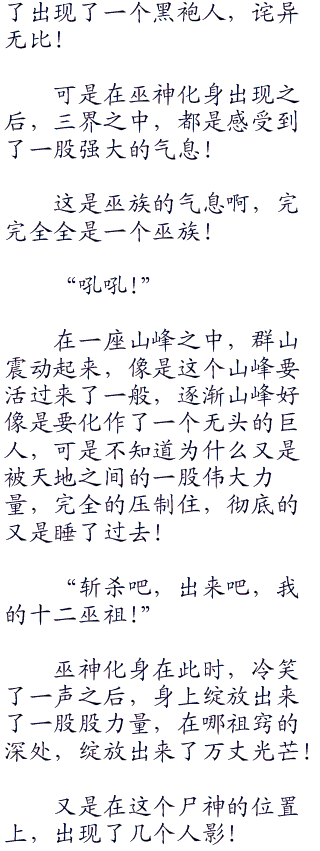 了出现了一个黑袍人，诧异
无比！
可是在巫神化身出现之
后，三界之中，都是感受到
了一股强大的气息！
这是巫族的气息啊，完
完全全是一个巫族！
“吼吼！”
在一座山峰之中，群山
震动起来，像是这个山峰要
活过来了一般，逐渐山峰好
像是要化作了一个无头的巨
人，可是不知道为什么又是
被天地之间的一股伟大力
量，完全的压制住，彻底的
又是睡了过去！
“斩杀吧，出来吧，我
的十二巫祖！”
巫神化身在此时，冷笑
了一声之后，身上绽放出来
了一股股力量，在哪祖窍的
深处，绽放出来了万丈光芒！
又是在这个尸神的位置
上，出现了几个人影！